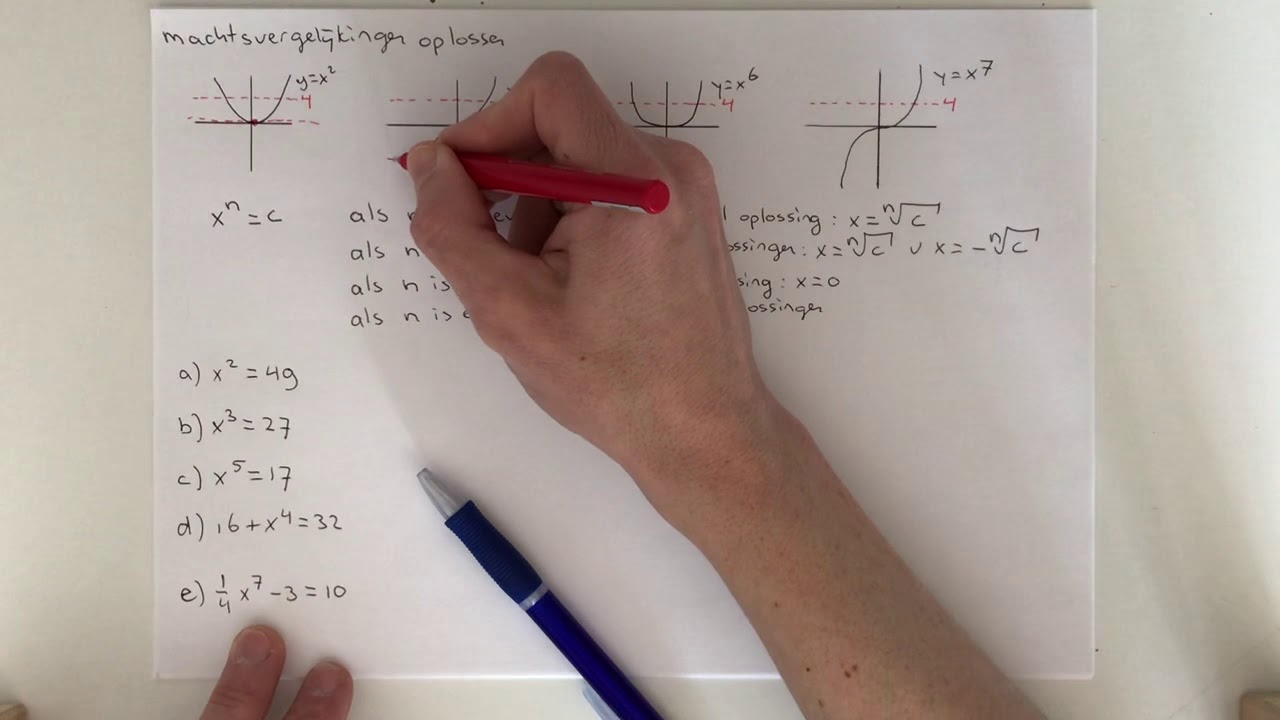 machtsvergelijkingen oplossen
y=x² y=x⁶ y=x⁷
4 4 4
xⁿ=c als oplossing : x=ⁿ√c
als n x=ⁿ√c ∪ x=-ⁿ√c
als n is x=0
als n is
a) x²=49
b) x³=27
c) x⁵=17
d) 16+x⁴=32
e) ¼x⁷-3=10